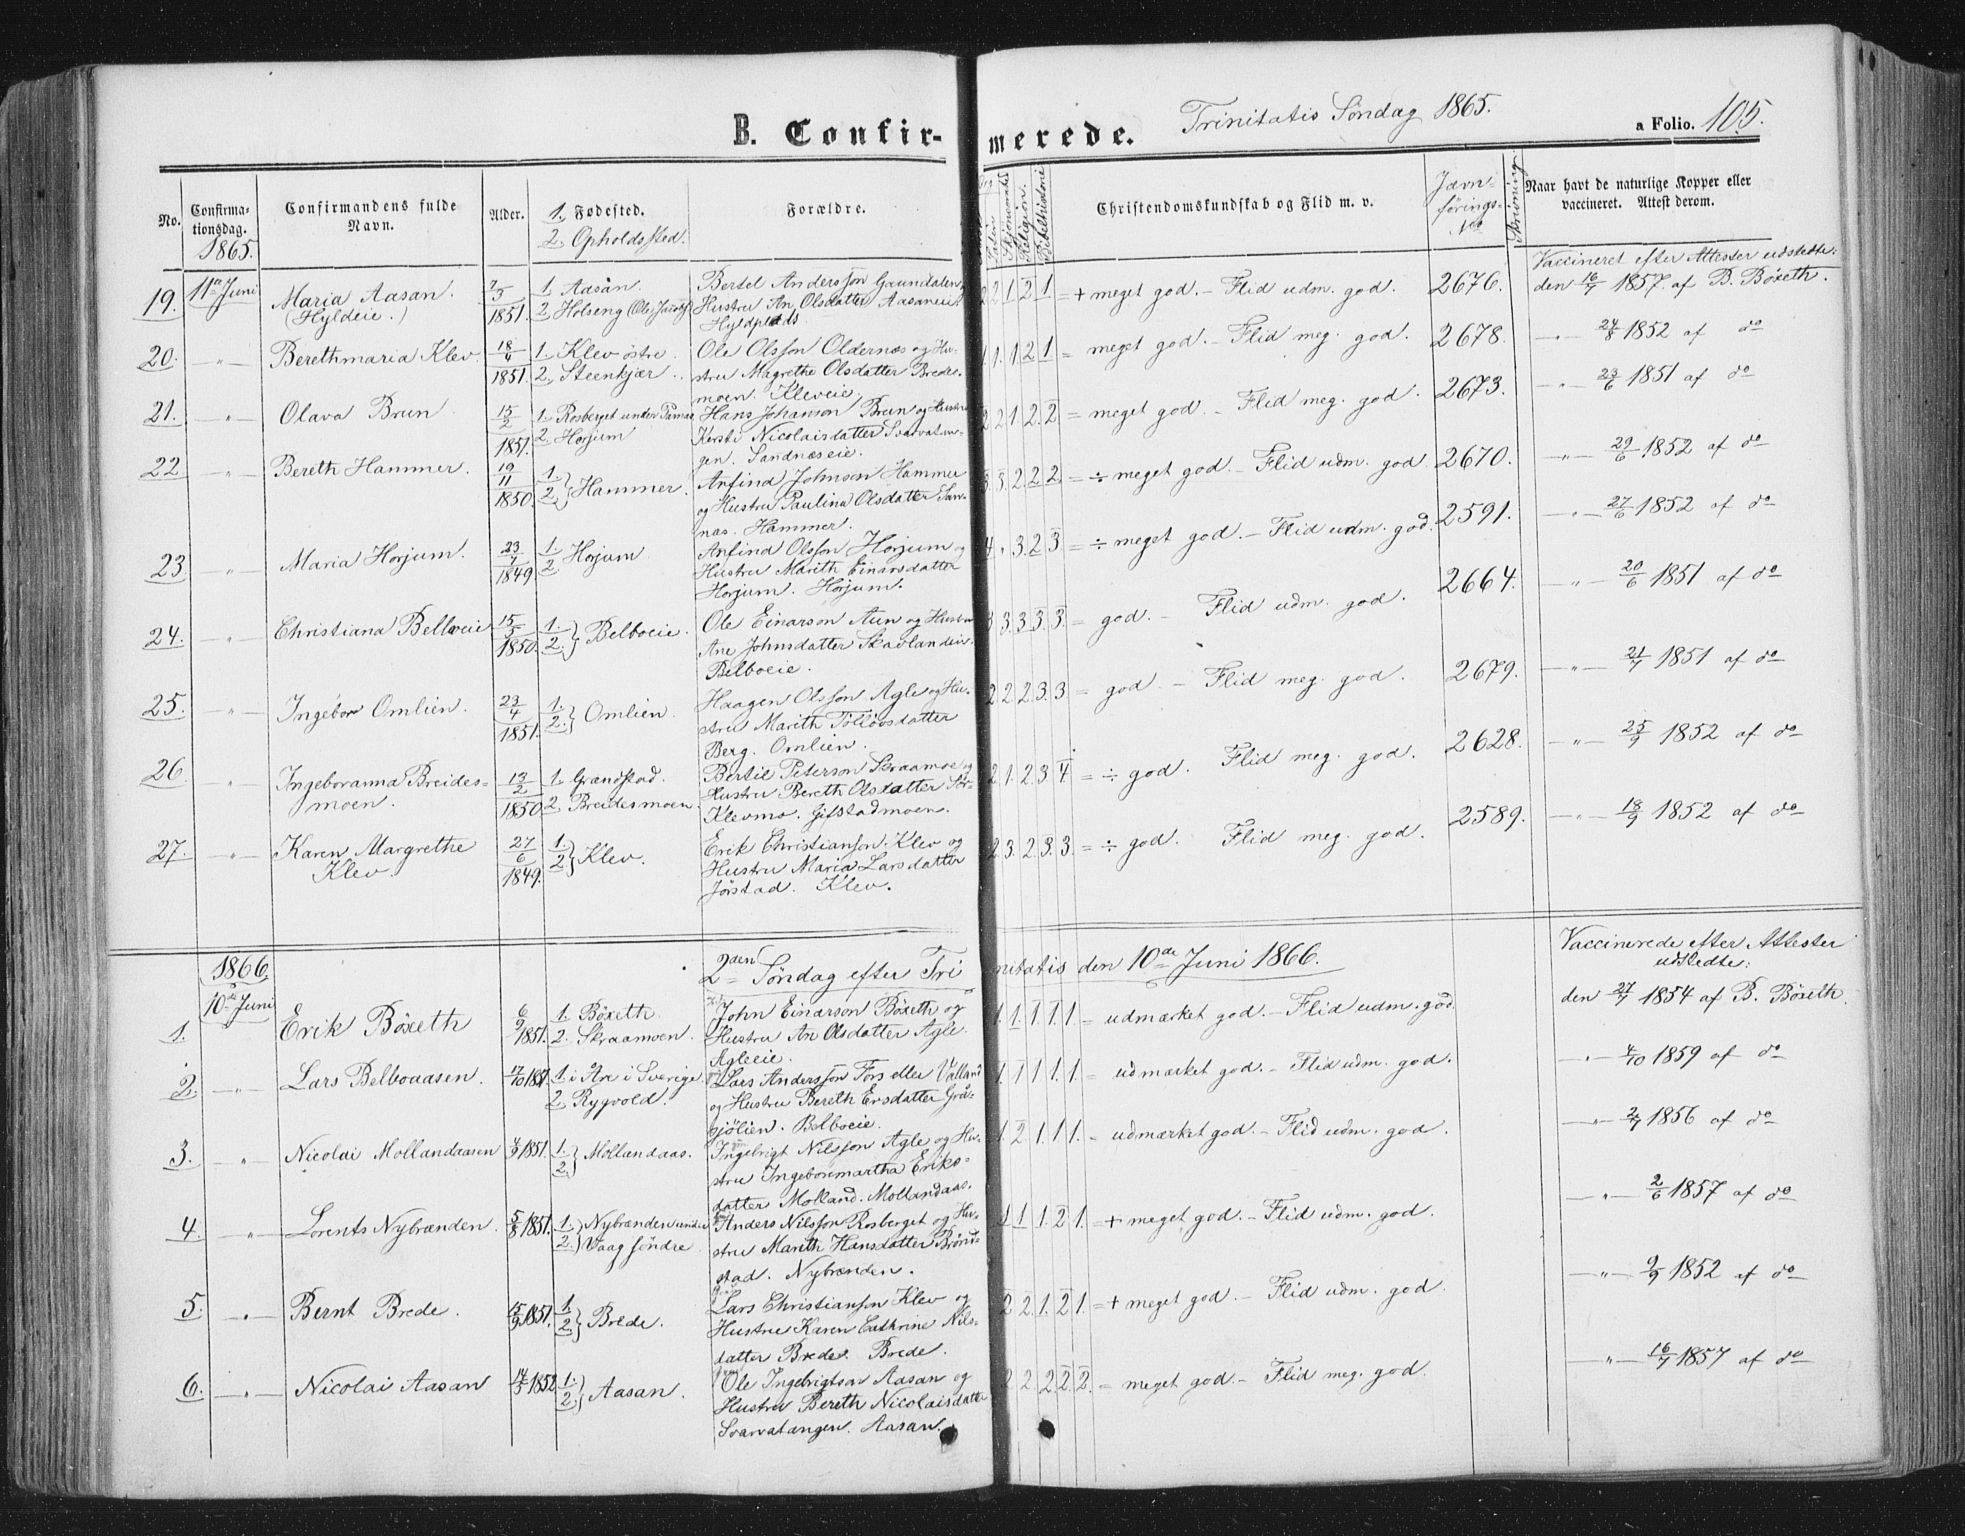 B. Confirmerede. Trinitatis Søndag 1865. a Folio. 105.
No. Confirmationsdag. 1865. Confirmandens fulde Navn. Alder. 1. Fødested. 2. Opholdssted. Forældre. Religion. Bibelhistorie Christendomskundskab og Flid m. v. Jævnførings- No Skrivning. Naar havt de naturlige Kopper eller vaccineret. Attest derom.
Vaccineret efter Attester udstedte:
19. 11te Juni Maria Aasan. 7/3 1851. 1. Aasan. Bertel Andersson Gaundalen, 2 2 1 2 1 = + meget god. - Flid udm. god. 2676. den 16/7 1857. af B. Böxeth.
(Hyldeie.) 2. Holseng (Ole Jacobs) Hustru An Olsdatter Aasaneiet
Hyldplads.
20. -"- Berethmaria Klev 18/4 1851. 1. Klev østre. Ole Olsson Oldernæs og Hu- 1. 1. 1 2 1 = meget god. - Flid meg. god. 2678. -"- 24/8 1852 af do
2. Steenkjær. stru Magrethe Olsdatter Bredes-
moen. Kleveie
21. -"- Olava Brun 15/2 1851. 1. Rosberget under Hans Johanson Brun og Hustru 2 2 1. 2. 2 = meget god. - Flid meg. god. 2673. -"- 23/6 1851 af do
2. Horjum Kersti Nicolaisdatter Svarvatan-
gen. Sandnæseie.
22 -"- Bereth Hammer. 19/11 1850. 1. 2. } Hammer. Arfind Johnson Hammer 3. 3. 2. 2 2 = ÷ meget god. - Flid udm. god. 2670. -"- 29/6 1852 af do
og Hustru Paulina Olsdatter San-
næs. Hammer.
23 -"- Maria Horjum. 23/7 1849 1. 2. Horjum Arfind Olsson Horjum og 4. 3. 2 3 = ÷ meget god. - Flid udm. god. 2591. -"- 27/6 1852 af do
Hustru Marith Einarsdatter
Horjum. Horjum.
24. -"- Christiana Belboeie 15/5 1850. 1. 2. } Belboeie. Ole Einarson Aun og Hustru 3 3. 3 3. 3. = god. - Flid udm. god. 2664. -"- 20/6 1851 af do
Ane Johnsdatter Skavlandeie.
Belboeie.
25. -"- Ingebor Omlien. 23/4 1851. 1. 2. } Omlien. Haagen Olsson Agle og Hu- 2 2 2 3. 3 = god. - Flid meg. god. 2679. -"- 21/7 1851 af do
stru Marith Tollovsdatter
Berg. Omlien.
26. -"- Ingeboranna Breides- 13/2 1850 1. Grandstad. Bertil Peterson Skraamoe og 2. 1. 2 3 4. = ÷ god. Flid meg. god. 2628. -"- 25/9 1852 af do
moen. 2. Breidesmoen. Hustru Bereth Olsdatter Sør-
Klevmo. Gifstadmoen.
27. -"- Karen Margrethe 27/6 1849. 1. 2 } Klev. Erik Christianson Klev og 2. 3. 2 3. 3. = ÷ god. Flid meg. god. 2589. -"- 18/9 1852 af do
Klev. Hustru Maria Larsdatter
Jørstad. Klev.
1866. 2den Søndag efter Trinitatis den 10de Juni 1866. Vaccinerede efter Attester
udstedte:
1. 10de Juni Erik Böxeth 6/9 1851. 1. Böxeth. John Einarson Böxeth og 1. 1. 1. 1. 1 = udmærket god. - Flid udm. god. den 27/7 1854 af B. Böxeth.
2. Skraamoen. Hustru An Olsdatter Agle.
Agleeie.
2. -"- Lars Belbouasen. 1. i Åre i Sverige. Lars Andersson Fors eller Valland 1. 1 1 1. 1. = udmærket god. - Flid udm. god. -"- 4/10 1859 af do
2. Rygvold. og Hustru Bereth Ersdatter Grå-
sjölien. Belboeie.
3. -"- Nicolai Mollandaasen 4/9 1851. 1. 2. } Mollandaas. Ingebrigt Nilsson Agle og Hu- 1. 2 1. 1 1. = udmærket god. - Flid udm. god. -"- 2/7 1856 af do
stru Ingebormartha Eriks-
datter Molland. Mollandaas.
4. -"- Lorents Nybrænden. 5/8 1851. 1. 2. } Nybrænden under Anders Nilsson Rosberget og Hu- 1 1 1. 2 1. = + meget god. - Flid udm. god. -"- 2/6 1857 af do
Vaag søndre. stru Marith Hansdatter Brönd-
stad. Nybrænden.
5. -"- Bernt Brede. 15/9 1851. 1. 2 } Brede. Lars Christianson Klev og 2 2 1. 2 1. = + meget god. - Flid udm. god. -"- 9/9 1852 af do
Hustru Karen Cathrine Nils-
datter Brede. Brede.
6. -"- Nicolai Aasan 14/3 1852 1. 2 } Aasan. Ole Ingebrigtson Aasan og 2 2 2. 2 2. = meget god. - Flid meg. god. -"- 16/7 1857 af do
Hustru Bereth Nicolaisdatter
Svarvatangen. Aasan.